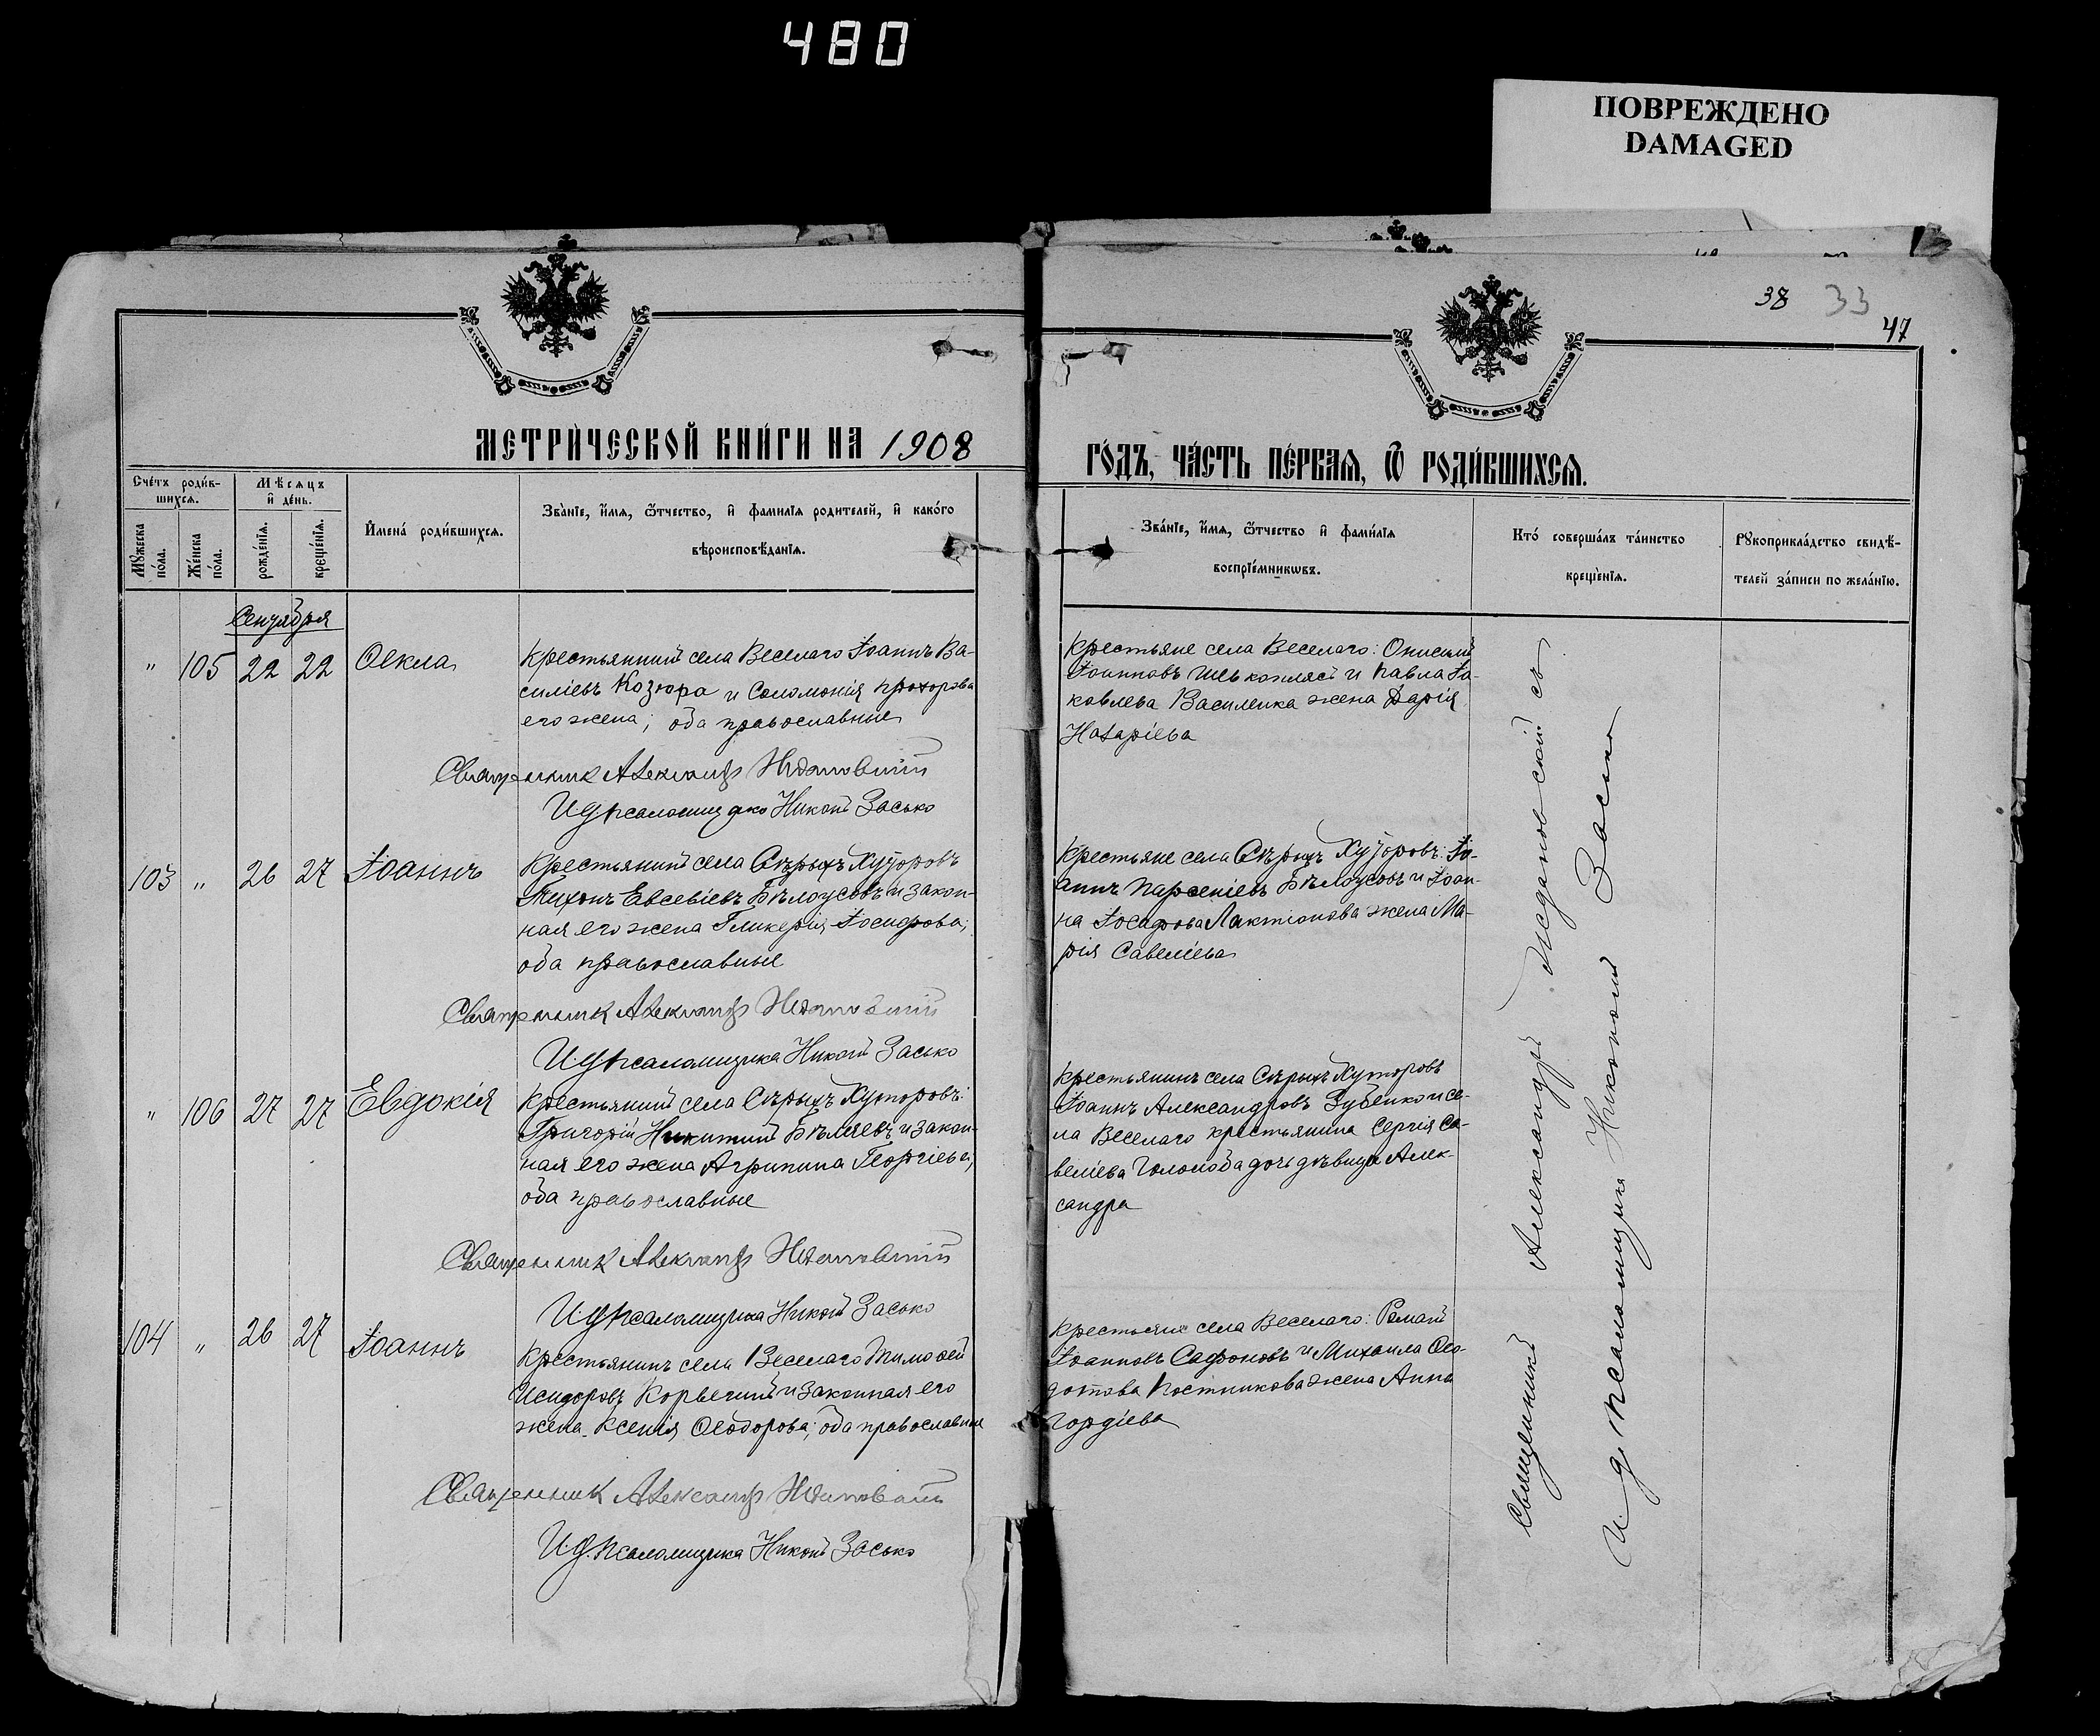 480
ПОВРЕЖДЕНО
DAMAGED
38 33
47
МЕТРИЧЕСКОЙ КНИГИ НА 1908
ГОДЪ, ЧАСТЬ ПЕРВАЯ, Ѿ РОДИВШИХСЯ.
Счетъ родив-
шихся.
Мѣсяцъ
и день.
Мужеска
пола.
Женска
пола.
рожденія.
крещенія.
Имена родившихся.
Званіе, имя, ѿтчество, и фамилія родителей, и какого
вѣроисповѣданія.
Званіе, имя, ѿтчество и фамилія
воспріемникѡвъ.
Кто совершалъ таинство
крещенія.
Рукоприкладство свидѣ-
телей записи по желанію.
Сентября
" 105 22 22 Ѳекла
Крестьянинъ села Веселаго Іоаннъ Ва-
силіевъ Козюра и Соломонія Прохорова
его жена; оба православные
Священник Александр Ждановский
И.д. псаломщика Никонъ Засько
Крестьяне села Веселаго: Онисим
Іоанновъ и Павла Іа-
ковлева Василенка жена Дарія
Назаріева
103 " 26 27 Іоаннъ
Крестьянинъ села Сѣрыхъ Хуторовъ
Тихонъ Евсевіевъ Бѣлоусовъ и закон-
ная его жена Гликерія Іосифова;
оба православные
Священник Александр Ждановский
И.д. псаломщика Никонъ Засько
Крестьяне села Сѣрыхъ Хуторовъ: Іо-
аннъ Парѳеніевъ Бѣлоусовъ и Іоан-
на Іосафова Лактіонова жена Ма-
рія Савеліева
" 106 27 27 Евдокія
Крестьянинъ села Сѣрыхъ Хуторовъ:
Григорій Никитинъ Бѣляевъ и закон-
ная его жена Агрипина Георгіева;
оба православные
Священник Александр Ждановский
И.д. псаломщика Никонъ Засько
Крестьянинъ села Сѣрыхъ Хуторовъ
Іоаннъ Александровъ Зубенко и се-
ла Веселаго крестьянина Сергія Са-
веліева Голопоба дочь дѣвица Алек-
сандра
104 " 26 27 Іоаннъ
Крестьянинъ села Веселаго Тимоѳей
Исидоровъ и законная его
жена Ксенія Ѳеодорова; оба православные
Священник Александр Ждановский
И.д. псаломщика Никонъ Засько
Крестьяне села Веселаго: Романъ
Іоанновъ Сафоновъ и Михаила Ѳео-
дотова Постникова жена Анна
Гордіева
Священникъ Александръ Ждановскій съ
И. д. псаломщика Никономъ Засько